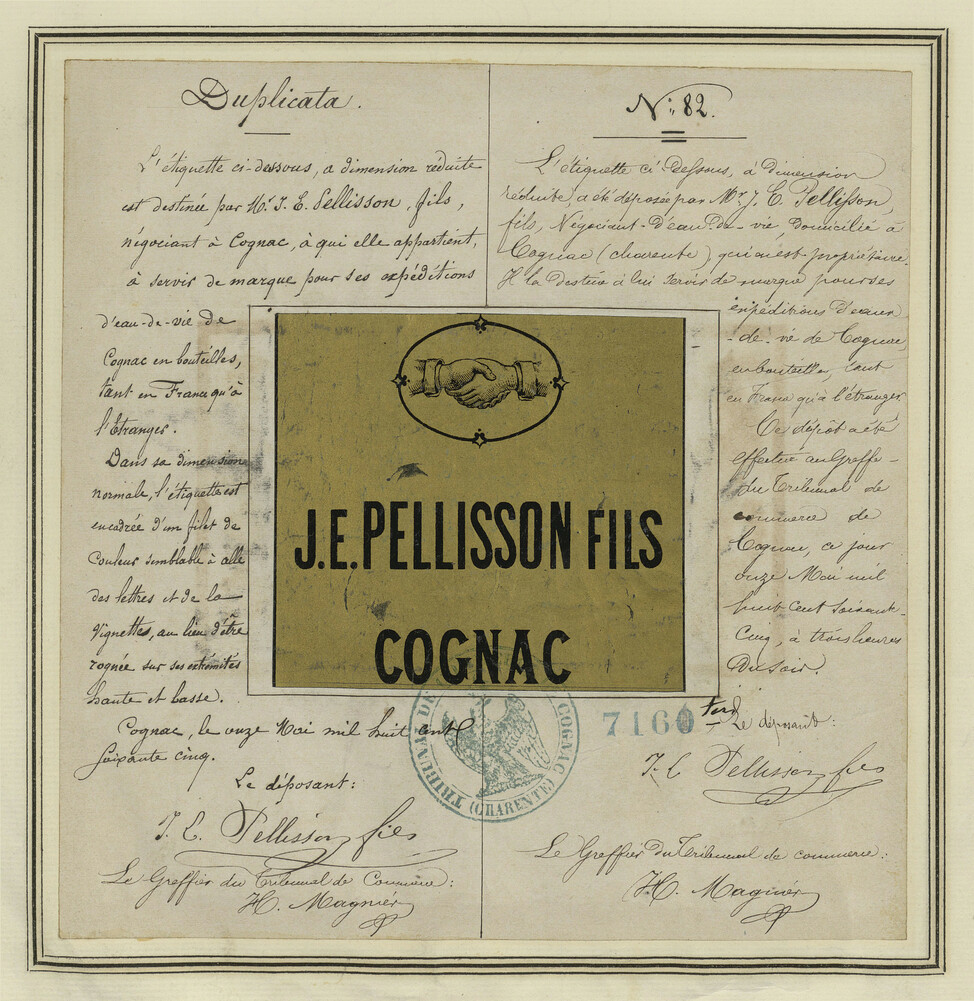 Duplicata.
L'étiquette ci-dessous, a dimension réduite
est destinée par Mr. J. E. Pellisson, fils,
négociant à Cognac, à qui elle appartient,
à servir de marque pour ses expéditions
d'eau-de-vie de
Cognac en bouteilles,
tant en France qu'à
l'Etranger.
Dans sa dimension
normale, l'étiquette est
encadrée d'un filet de
couleur semblable à celle
des lettres et de la
vignettes, au lieu d'être
rognée sur ses extrémités
haute et basse.
Cognac, le onze Mai mil huit cent
soixante cinq.
Le déposant:
J. E. Pellisson fils
Le Greffier du Tribunal de Commerce:
H. Magnier
No: 82.
L'étiquette ci-dessous, à dimension
réduite, a été déposée par Mr. J. E. Pellisson,
fils, Négociant-d'eau-de-vie, domicilié à
Cognac (charente), qui en est propriétaire.
Il la destine à lui servir de marque pour ses
expéditions d'eaux-
-de-vie de Cognac,
en bouteilles, tant
en France qu'à l'étranger.
Ce dépôt a été
effectué au Greffe-
du Tribunal de
commerce de
Cognac, ce jour
onze Mai mil
huit cent soixante-
cinq, à trois heures
du soir.
Le déposant:
J. E. Pellisson fils
Le Greffier du Tribunal de commerce:
H. Magnier
J.E. PELLISSON FILS
COGNAC
TRIBUNAL DE COGNAC
(CHARENTE)
7160